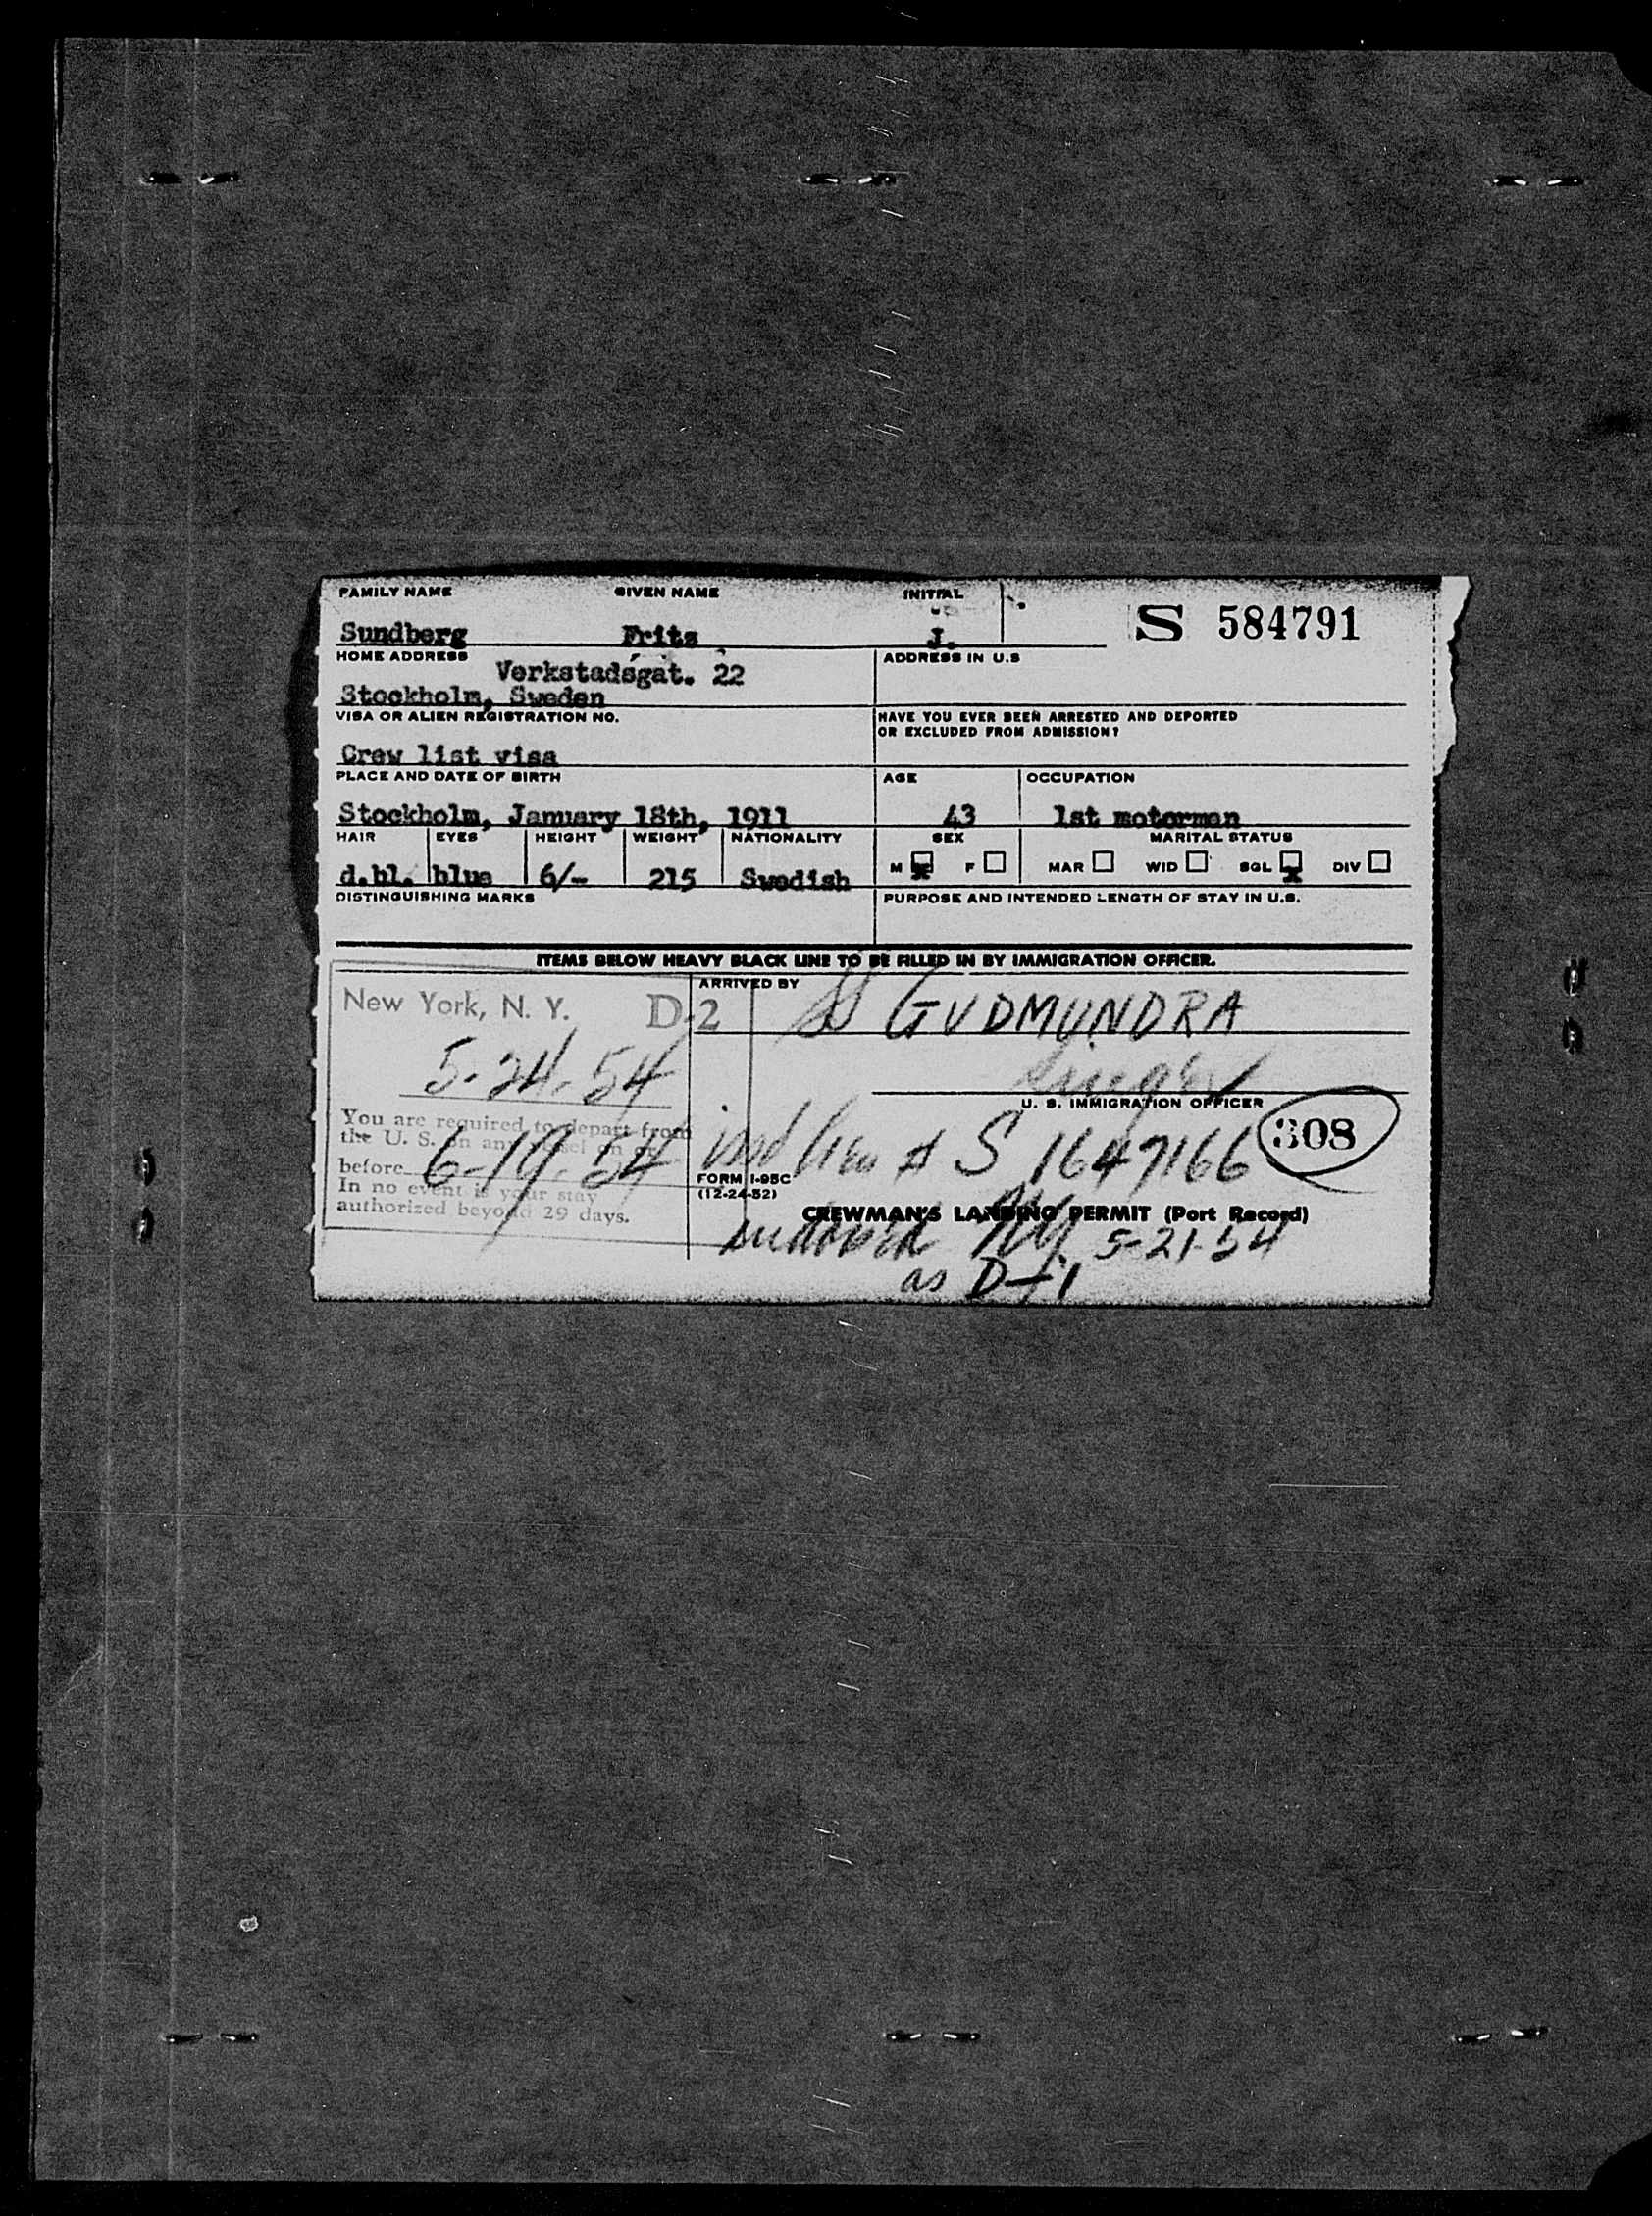 FAMILY NAME GIVEN NAME INITIAL
S 584791
Sundberg Fritz J.
HOME ADDRESS ADDRESS IN U.S
Verkstadsgat. 22
Stockholm, Sweden
VISA OR ALIEN REGISTRATION NO. HAVE YOU EVER BEEN ARRESTED AND DEPORTED
OR EXCLUDED FROM ADMISSION?
Crew list visa
PLACE AND DATE OF BIRTH AGE OCCUPATION
Stockholm, January 18th, 1911 43 1st motorman
HAIR EYES HEIGHT WEIGHT NATIONALITY SEX MARITAL STATUS
M F MAR WID SGL DIV
d.bl. blue 6/- 215 Swedish
DISTINGUISHING MARKS PURPOSE AND INTENDED LENGTH OF STAY IN U.S.
ITEMS BELOW HEAVY BLACK LINE TO BE FILLED IN BY IMMIGRATION OFFICER.
ARRIVED BY
New York, N. Y. D-2 GUDMUNDRA
5-24-54
U. S. IMMIGRATION OFFICER
You are required to depart from
the U. S. on any vessel on or
before 6-19-54
In no event is your stay
authorized beyond 29 days.
# S 1647166 308
FORM I-95C
(12-24-52)
CREWMAN'S LANDING PERMIT (Port Record)
NY 5-21-54
as D-1